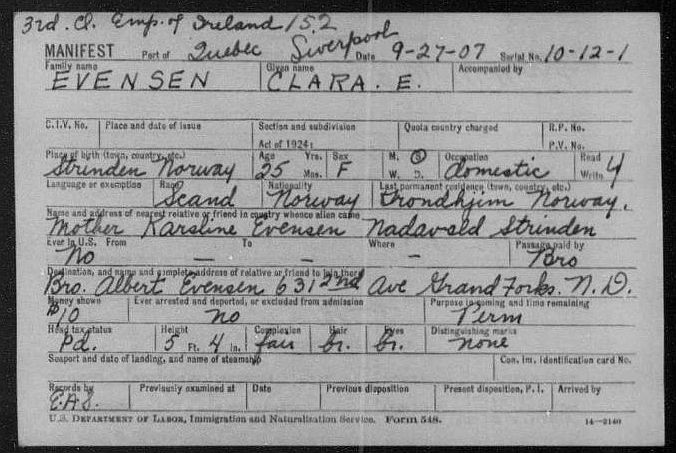 3rd. Cl. Emp. of Ireland 15.2
MANIFEST Port of Quebec Liverpool Date 9-27-07 Serial No. 10-12-1
Family name Given name Accompanied by
EVENSEN CLARA. E.
C.I.V. No. Place and date of issue Section and subdivision Quota country charged R.P. No.
Act of 1924: P.V. No.
Place of birth (town, country, etc.) Age Yrs. Sex M. S Occupation Read
Strinden Norway 25 Mos. F W. D. domestic Write 4
Language or exemption Race Nationality Last permanent residence (town, country, etc.)
Scand Norway Trondhjim Norway.
Name and address of nearest relative or friend in country whence alien came
Mother Karsline Evensen Nadavald Strinden
Ever in U.S. From To Where Passage paid by
No — — — Bro
Destination, and name and complete address of relative or friend to join there
Bro. Albert Evensen 631 2nd Ave Grand Forks. N. D.
Money shown Ever arrested and deported, or excluded from admission Purpose in coming and time remaining
$10 no Perm
Head tax status Height Complexion Hair Eyes Distinguishing marks
Pd. 5 Ft. 4 In. fair br. br. none
Seaport and date of landing, and name of steamship Can. Im. Identification card No.
Records by Previously examined at Date Previous disposition Present disposition, P. I. Arrived by
E.A.S.
U.S. DEPARTMENT OF LABOR, Immigration and Naturalization Service. Form 548. 14—2140